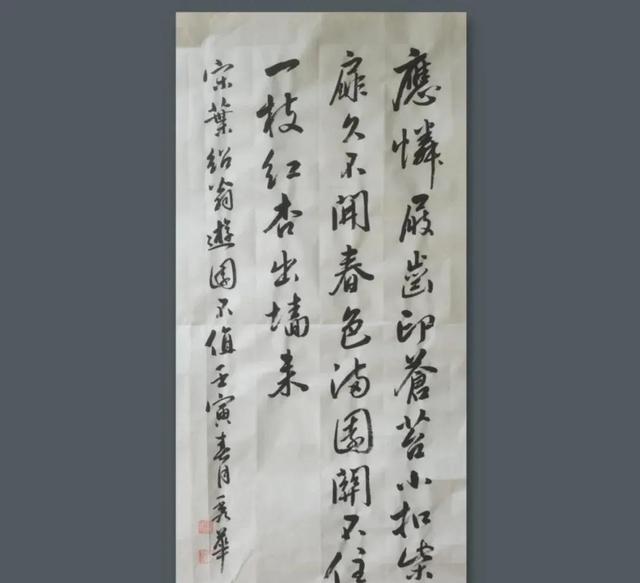 應憐屐齒印蒼苔小扣柴
扉久不開春色滿園關不住
一枝红杏出墙来
宋葉紹翁遊園不值壬寅春月秀華